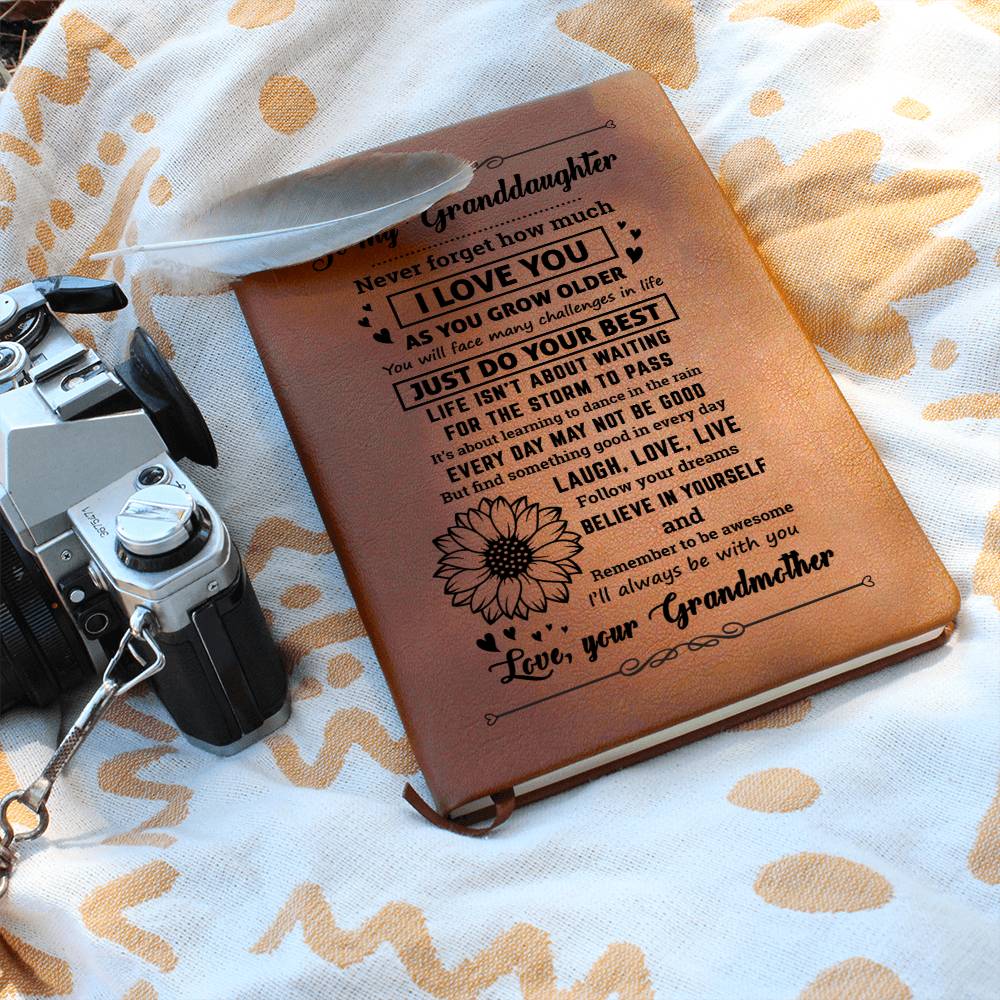 To My Granddaughter
Never forget how much
I LOVE YOU
AS YOU GROW OLDER
You will face many challenges in life
JUST DO YOUR BEST
LIFE ISN'T ABOUT WAITING
FOR THE STORM TO PASS
It's about learning to dance in the rain
EVERY DAY MAY NOT BE GOOD
But find something good in every day
LAUGH, LOVE, LIVE
Follow your dreams
BELIEVE IN YOURSELF
and
Remember to be awesome
I'll always be with you
Love, your Grandmother
367547A